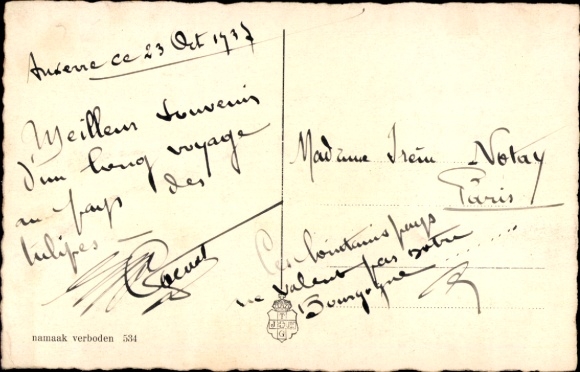 Auxerre ce 23 Oct 1937
Meilleur souvenir
d'un long voyage
au pays des
tulipes
Madame Irén Notay
Paris
Ces lointains pays
ne valent pas notre
Bourgogne
namaak verboden 534